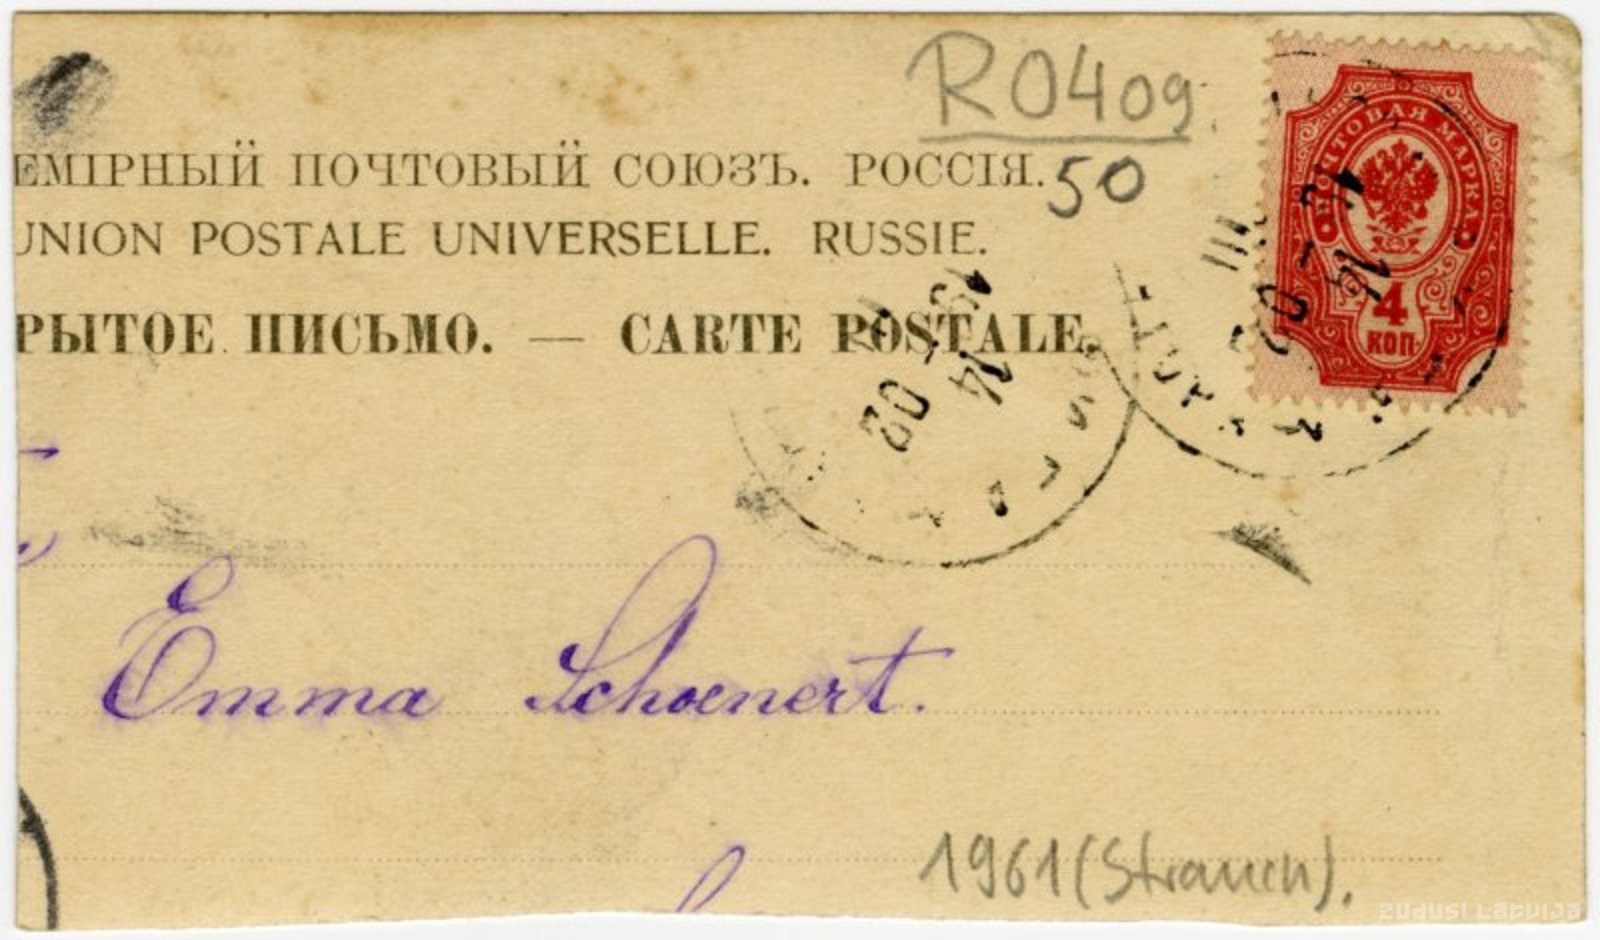 R0409
50
ЕМІРНЫЙ ПОЧТОВЫЙ СОЮЗЪ. РОССІЯ.
UNION POSTALE UNIVERSELLE. RUSSIE.
РЫТОЕ ПИСЬМО. — CARTE POSTALE.
ПОЧТОВАЯ МАРКА
4
КОП.
III
14
02
19
14
02
Emma Schoenert.
1961 (Strauch).
ZUDUSI LATVIJA